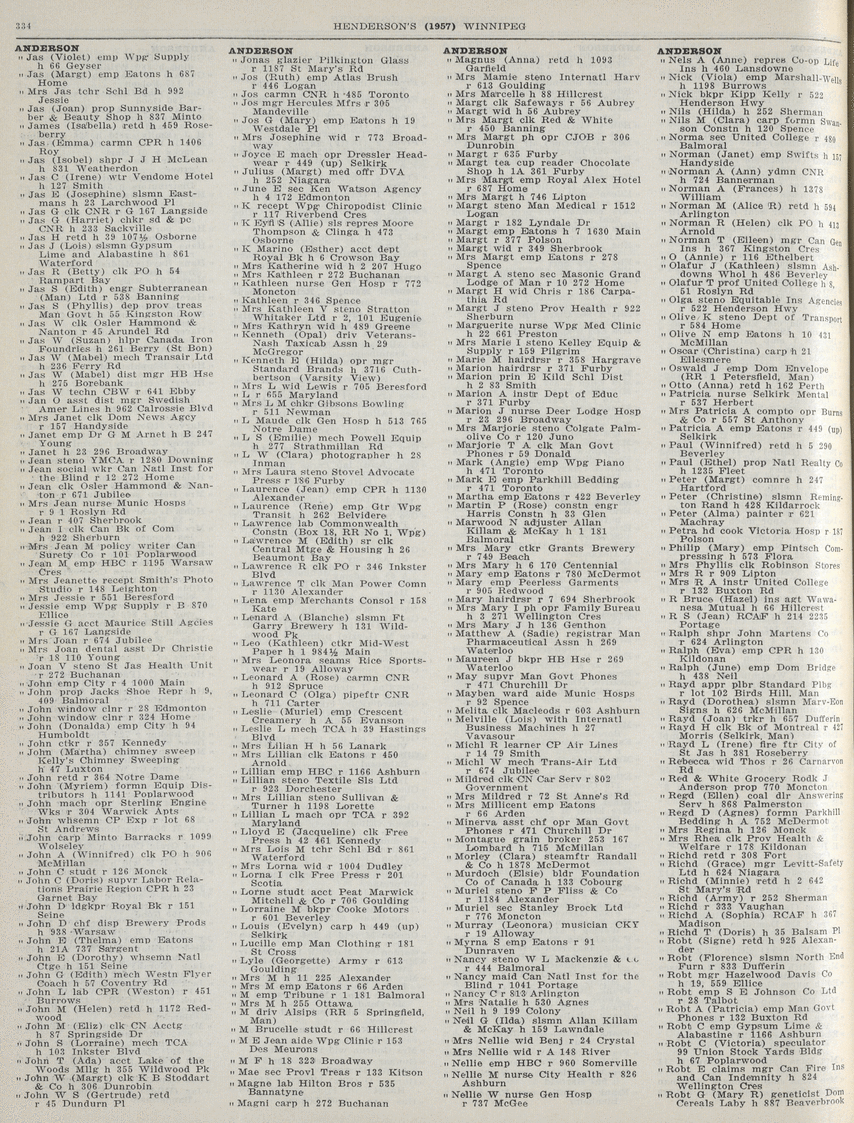 334
HENDERSON'S (1957) WINNIPEG
ANDERSON
" Jas (Violet) emp Wpg Supply
h 66 Geyser
" Jas (Margt) emp Eatons h 687
Home
" Mrs Jas tchr Schl Bd h 992
Jessie
" Jas (Joan) prop Sunnyside Bar-
ber & Beauty Shop h 837 Minto
" James (Isabella) retd h 459 Rose-
berry
" Jas (Emma) carmn CPR h 1406
Roy
" Jas (Isobel) shpr J J H McLean
h 831 Weatherdon
" Jas C (Irene) wtr Vendome Hotel
h 127 Smith
" Jas E (Josephine) slsmn East-
mans h 23 Larchwood Pl
" Jas G clk CNR r G 167 Langside
" Jas G (Harriet) chkr sd & pc
CNR h 233 Sackville
" Jas H retd h 39 107½ Osborne
" Jas J (Lois) slsmn Gypsum
Lime and Alabastine h 861
Waterford
" Jas R (Betty) clk PO h 54
Rampart Bay
" Jas S (Edith) engr Subterranean
(Man) Ltd r 538 Banning
" Jas S (Phyllis) dep prov treas
Man Govt h 55 Kingston Row
" Jas W clk Osler Hammond &
Nanton r 45 Arundel Rd
" Jas W (Suzan) hlpr Canada Iron
Foundries h 261 Berry (St Bon)
" Jas W (Mabel) mech Transair Ltd
h 236 Ferry Rd
" Jas W (Mabel) dist mgr HB Hse
h 275 Borebank
" Jas W techn CBW r 641 Ebby
" Jan O asst dist mgr Swedish
Amer Lines h 962 Calrossie Blvd
" Mrs Janet clk Dom News Agcy
r 157 Handyside
" Janet emp Dr G M Arnet h B 247
Young
" Janet h 23 296 Broadway
" Jean steno YMCA r 1280 Downing
" Jean social wkr Can Natl Inst for
the Blind r 12 272 Home
" Jean clk Osler Hammond & Nan-
ton r 671 Jubilee
" Mrs Jean nurse Munic Hosps
r 9 1 Roslyn Rd
" Jean r 407 Sherbrook
" Jean I clk Can Bk of Com
h 922 Sherburn
" Mrs Jean M policy writer Can
Surety Co r 101 Poplarwood
" Jean M emp HBC r 1195 Warsaw
Cres
" Mrs Jeanette recept Smith's Photo
Studio r 148 Leighton
" Mrs Jessie r 551 Beresford
" Jessie emp Wpg Supply r B 870
Ellice
" Jessie G acct Maurice Still Agcies
r G 167 Langside
" Mrs Joan r 674 Jubilee
" Mrs Joan dental asst Dr Christie
r 18 110 Young
" Joan V steno St Jas Health Unit
r 272 Buchanan
" John emp City r 4 1000 Main
" John prop Jacks Shoe Repr h 9,
409 Balmoral
" John window clnr r 28 Edmonton
" John window clnr r 324 Home
" John (Donalda) emp City h 94
Humboldt
" John ctkr r 357 Kennedy
" John (Martha) chimney sweep
Kelly's Chimney Sweeping
h 47 Luxton
" John retd r 364 Notre Dame
" John (Myriem) formn Equip Dis-
tributors h 1141 Poplarwood
" John mach opr Sterling Engine
Wks r 304 Warwick Apts
" John whsemn CP Exp r lot 68
St Andrews
" John carp Minto Barracks r 1099
Wolseley
" John A (Winnifred) clk PO h 906
McMillan
" John C studt r 126 Monck
" John C (Doris) supvr Labor Rela-
tions Prairie Region CPR h 23
Garnet Bay
" John D ldgkpr Royal Bk r 151
Seine
" John D chf disp Brewery Prods
h 938 Warsaw
" John E (Thelma) emp Eatons
h 21A 737 Sargent
" John E (Dorothy) whsemn Natl
Ctge h 151 Seine
" John G (Edith) mech Westn Flyer
Coach h 57 Coventry Rd
" John L lab CPR (Weston) r 451
Burrows
" John M (Helen) retd h 1172 Red-
wood
" John M (Ella) clk CN Acctg
h 87 Springside Dr
" John S (Lorraine) mech TCA
h 103 Inkster Blvd
" John T (Ada) acct Lake of the
Woods Mllg h 355 Wildwood Pk
" John W (Margt) clk K B Stoddart
& Co h 306 Dunrobin
" John W S (Gertrude) retd
r 45 Dundurn Pl
ANDERSON
" Jonas glazier Pilkington Glass
r 1187 St Mary's Rd
" Jos (Ruth) emp Atlas Brush
r 446 Logan
" Jos carmn CNR h 485 Toronto
" Jos mgr Hercules Mfrs r 305
Mandeville
" Jos G (Mary) emp Eatons h 19
Westdale Pl
" Mrs Josephine wid r 773 Broad-
way
" Joyce E mach opr Dressler Head-
wear r 449 (up) Selkirk
" Julius (Margt) med offr DVA
h 252 Niagara
" June E sec Ken Watson Agency
h 4 172 Edmonton
" K recept Wpg Chiropodist Clinic
r 117 Riverbend Cres
" K Eyfi S (Allie) sls repres Moore
Thompson & Clinga h 473
Osborne
" K Marino (Esther) acct dept
Royal Bk h 6 Crowson Bay
" Mrs Katherine wid h 2 207 Hugo
" Mrs Kathleen r 272 Buchanan
" Kathleen nurse Gen Hosp r 772
Moncton
" Kathleen r 346 Spence
" Mrs Kathleen V steno Stratton
Whitaker Ltd r 2, 101 Eugenie
" Mrs Kathryn wid h 489 Greene
" Kenneth (Opal) driv Veterans-
Nash Taxxab Assn h 29
McGregor
" Kenneth E (Hilda) opr mgr
Standard Brands h 3716 Cuth-
bertson (Varsity View)
" Mrs L wid Lewis r 705 Beresford
" L r 655 Maryland
" Mrs L M chkr Gibsons Bowling
r 511 Newman
" L Maude clk Gen Hosp h 513 765
Notre Dame
" L S (Emilie) mech Powell Equip
h 277 Strathmillan Rd
" L W (Clara) photographer h 28
Inman
" Mrs Laura steno Stovel Advocate
Press r 186 Furby
" Laurence (Jean) emp CPR h 1130
Alexander
" Laurence (Rene) emp Gtr Wpg
Transit h 262 Belvidere
" Lawrence lab Commonwealth
Constn (Box 18, RR No 1, Wpg)
" Lawrence M (Edith) sr clk
Central Mtge & Housing h 26
Beaumont Bay
" Lawrence R clk PO r 346 Inkster
Blvd
" Lawrence T clk Man Power Comn
r 1130 Alexander
" Lena emp Merchants Consol r 158
Kate
" Lenard A (Blanche) slsmn Ft
Garry Brewery h 131 Wild-
wood Pk
" Leo (Kathleen) ctkr Mid-West
Paper h 1 984½ Main
" Mrs Leonora seams Rice Sports-
wear r 19 Alloway
" Leonard A (Rose) carmn CNR
h 912 Spruce
" Leonard C (Olga) pipeftr CNR
h 711 Carter
" Leslie (Muriel) emp Crescent
Creamery h A 55 Evanson
" Leslie L mech TCA h 39 Hastings
Blvd
" Mrs Lilian H h 56 Lanark
" Mrs Lillian clk Eatons r 450
Arnold
" Lillian emp HBC r 1166 Ashburn
" Lillian steno Textile Sls Ltd
r 923 Dorchester
" Mrs Lillian steno Sullivan &
Turner h 1198 Lorette
" Lillian L mach opr TCA r 392
Maryland
" Lloyd E (Jacqueline) clk Free
Press h 42 461 Kennedy
" Mrs Lois M tchr Schl Bd r 861
Waterford
" Mrs Lorna wid r 1004 Dudley
" Lorna I clk Free Press r 201
Scotia
" Lorne studt acct Peat Marwick
Mitchell & Co r 706 Goulding
" Lorraine M bkpr Cooke Motors
r 601 Beverley
" Louis (Evelyn) carp h 449 (up)
Selkirk
" Lucille emp Man Clothing r 181
St Cross
" Lyle (Georgette) Army r 613
Goulding
" Mrs M h 11 225 Alexander
" Mrs M emp Eatons r 66 Arden
" M emp Tribune r 1 181 Balmoral
" Mrs M h 255 Ottawa
" M driv Alsips (RR 5 Springfield,
Man)
" M Brucelle studt r 66 Hillcrest
" M E Jean aide Wpg Clinic r 153
Des Meurons
" M F h 18 323 Broadway
" Mae sec Provl Treas r 133 Kitson
" Magne lab Hilton Bros r 535
Bannatyne
" Magni carp h 272 Buchanan
ANDERSON
" Magnus (Anna) retd h 1093
Garfield
" Mrs Mamie steno Internatl Harv
r 613 Goulding
" Mrs Marcelle h 88 Hillcrest
" Margt clk Safeways r 56 Aubrey
" Margt wid h 56 Aubrey
" Mrs Margt clk Red & White
r 450 Banning
" Mrs Margt ph opr CJOB r 306
Dunrobin
" Margt r 635 Furby
" Margt tea cup reader Chocolate
Shop h 1A 361 Furby
" Mrs Margt emp Royal Alex Hotel
r 687 Home
" Mrs Margt h 746 Lipton
" Margt steno Man Medical r 1512
Logan
" Margt r 182 Lyndale Dr
" Margt emp Eatons h 7 1630 Main
" Margt r 377 Polson
" Margt wid r 349 Sherbrook
" Mrs Margt emp Eatons r 278
Spence
" Margt A steno sec Masonic Grand
Lodge of Man r 10 272 Home
" Margt H wid Chris r 186 Carpa-
thia Rd
" Margt J steno Prov Health r 922
Sherburn
" Marguerite nurse Wpg Med Clinic
h 22 661 Preston
" Mrs Marie I steno Kelley Equip &
Supply r 159 Pilgrim
" Marie M hairdrsr r 358 Hargrave
" Marion hairdrsr r 371 Furby
" Marion prin E Kild Schl Dist
h 2 83 Smith
" Marion A instr Dept of Educ
r 371 Furby
" Marion J nurse Deer Lodge Hosp
r 23 296 Broadway
" Mrs Marjorie steno Colgate Palm-
olive Co r 120 Juno
" Marjorie T A clk Man Govt
Phones r 59 Donald
" Mark (Angie) emp Wpg Piano
h 471 Toronto
" Mark E emp Parkhill Bedding
r 471 Toronto
" Martha emp Eatons r 422 Beverley
" Martin P (Rose) constn engr
Harris Constn h 33 Glen
" Marwood N adjuster Allan
Killam & McKay h 1 181
Balmoral
" Mrs Mary ctkr Grants Brewery
r 749 Beach
" Mrs Mary h 6 170 Centennial
" Mary emp Eatons r 780 McDermot
" Mary emp Peerless Garments
r 905 Redwood
" Mary hairdrsr r 7 694 Sherbrook
" Mrs Mary I ph opr Family Bureau
h 3 271 Wellington Cres
" Mrs Mary J h 136 Genthon
" Matthew A (Sadie) registrar Man
Pharmaceutical Assn h 269
Waterloo
" Maureen J bkpr HB Hse r 269
Waterloo
" May supvr Man Govt Phones
r 471 Churchill Dr
" Mayben ward aide Munic Hosps
r 92 Spence
" Melita clk Macleods r 603 Ashburn
" Melville (Lois) with Internatl
Business Machines h 27
Vavasour
" Michl R learner CP Air Lines
r 14 79 Smith
" Michl W mech Trans-Air Ltd
r 674 Jubilee
" Mildred clk CN Car Serv r 802
Government
" Mrs Mildred r 72 St Anne's Rd
" Mrs Millicent emp Eatons
r 66 Arden
" Minerva asst chf opr Man Govt
Phones r 471 Churchill Dr
" Montague grain broker 253 167
Lombard h 715 McMillan
" Morley (Clara) steamftr Randall
& Co h 1878 McDermot
" Murdoch (Elsie) bldr Foundation
Co of Canada h 133 Cobourg
" Muriel steno F P Fliss & Co
r 1184 Alexander
" Muriel sec Stanley Brock Ltd
r 776 Moncton
" Murray (Leonora) musician CKY
r 19 Alloway
" Myrna S emp Eatons r 91
Dunraven
" Nancy steno W L Mackenzie &
r 444 Balmoral
" Nancy maid Can Natl Inst for the
Blind r 1041 Portage
" Nancy C r 813 Arlington
" Mrs Natalie h 530 Agnes
" Neil h 9 199 Colony
" Neil G (Ilda) slsmn Allan Killam
& McKay h 159 Lawndale
" Mrs Nellie wid Benj r 24 Crystal
" Mrs Nellie wid r A 148 River
" Nellie emp HBC r 960 Somerville
" Nellie M nurse City Health r 826
Ashburn
" Nellie W nurse Gen Hosp
r 737 McGee
ANDERSON
" Nels A (Anne) repres Co-op Life
Ins h 460 Lansdowne
" Nick (Viola) emp Marshall-Wells
h 1198 Burrows
" Nick bkpr Kipp Kelly r 522
Henderson Hwy
" Nils (Hilda) h 252 Sherman
" Nils M (Clara) carp formn Swan-
son Constn h 120 Spence
" Norma sec United College r 480
Balmoral
" Norman (Janet) emp Swifts h 157
Handyside
" Norman A (Ann) ydmn CNR
h 724 Bannerman
" Norman A (Frances) h 1378
William
" Norman M (Alice R) retd h 594
Arlington
" Norman R (Helen) clk PO h 412
Arnold
" Norman T (Eileen) mgr Can Gen
Ins h 367 Kingston Cres
" O (Annie) r 116 Ethelbert
" Olafur J (Kathleen) slsmn Ash-
downs Whol h 486 Beverley
" Olafur T prof United College h 8,
51 Roslyn Rd
" Olga steno Equitable Ins Agencies
r 522 Henderson Hwy
" Olive K steno Dept of Transport
r 584 Home
" Olive N emp Eatons h 10 431
McMillan
" Oscar (Christina) carp h 21
Ellesmere
" Oswald J emp Dom Envelope
(RR 1 Petersfield, Man)
" Otto (Anna) retd h 162 Perth
" Patricia nurse Selkirk Mental
r 537 Herbert
" Mrs Patricia A compto opr Burns
& Co r 557 St Anthony
" Patricia A emp Eatons r 449 (up)
Selkirk
" Paul (Winnifred) retd h 5 290
Beverley
" Paul (Ethel) prop Natl Realty Co
h 1235 Fleet
" Peter (Margt) comnre h 247
Hartford
" Peter (Christine) slsmn Reming-
ton Rand h 428 Kildarrock
" Peter (Alma) painter r 621
Machray
" Petra hd cook Victoria Hosp r 187
Polson
" Philip (Mary) emp Pintsch Com-
pressing h 573 Flora
" Mrs Phyllis clk Robinson Stores
" Mrs R r 909 Lipton
" Mrs R A instr United College
r 132 Buxton Rd
" R Bruce (Hazel) ins agt Wawa-
nesa Mutual h 66 Hillcrest
" R S (Jean) RCAF h 214 2235
Portage
" Ralph shpr John Martens Co
r 624 Arlington
" Ralph (Eva) emp CPR h 130
Kildonan
" Ralph (June) emp Dom Bridge
h 438 Neil
" Rayd appr plbr Standard Plbg
r lot 102 Birds Hill, Man
" Rayd (Dorothea) slsmn Marv-Eon
Signs h 626 McMillan
" Rayd (Joan) trkr h 657 Dufferin
" Rayd H clk Bk of Montreal r 427
Morris (Selkirk, Man)
" Rayd L (Irene) fire ftr City of
St Jas h 381 Roseberry
" Rebecca wid Thos r 26 Carnarvon
Rd
" Red & White Grocery Rodk J
Anderson prop 770 Moncton
" Regd (Ellen) coal dlr Answering
Serv h 868 Palmerston
" Regd D (Agnes) formn Parkhill
Bedding h A 752 McDermot
" Mrs Regina h 126 Monck
" Mrs Rhea clk Prov Health &
Welfare r 178 Kildonan
" Richd retd r 308 Fort
" Richd (Grace) mgr Levitt-Safety
Ltd h 624 Niagara
" Richd (Minnie) retd h 2 642
St Mary's Rd
" Richd (Army) r 252 Sherman
" Richd r 333 Vaughan
" Richd A (Sophia) RCAF h 367
Madison
" Richd T (Doris) h 35 Balsam Pl
" Robt (Signe) retd h 925 Alexan-
der
" Robt (Florence) slsmn North End
Furn r 833 Dufferin
" Robt mgr Hazelwood Davis Co
h 19, 559 Ellice
" Robt emp S E Johnson Co Ltd
r 28 Talbot
" Robt A (Patricia) emp Man Govt
Phones r 132 Buxton Rd
" Robt C emp Gypsum Lime &
Alabastine r 1166 Ashburn
" Robt C (Victoria) speculator
99 Union Stock Yards Bldg
h 67 Poplarwood
" Robt E claims mgr Can Fire Ins
and Can Indemnity h 824
Wellington Cres
" Robt G (Mary R) geneticist Dom
Cereals Laby h 887 Beaverbrook